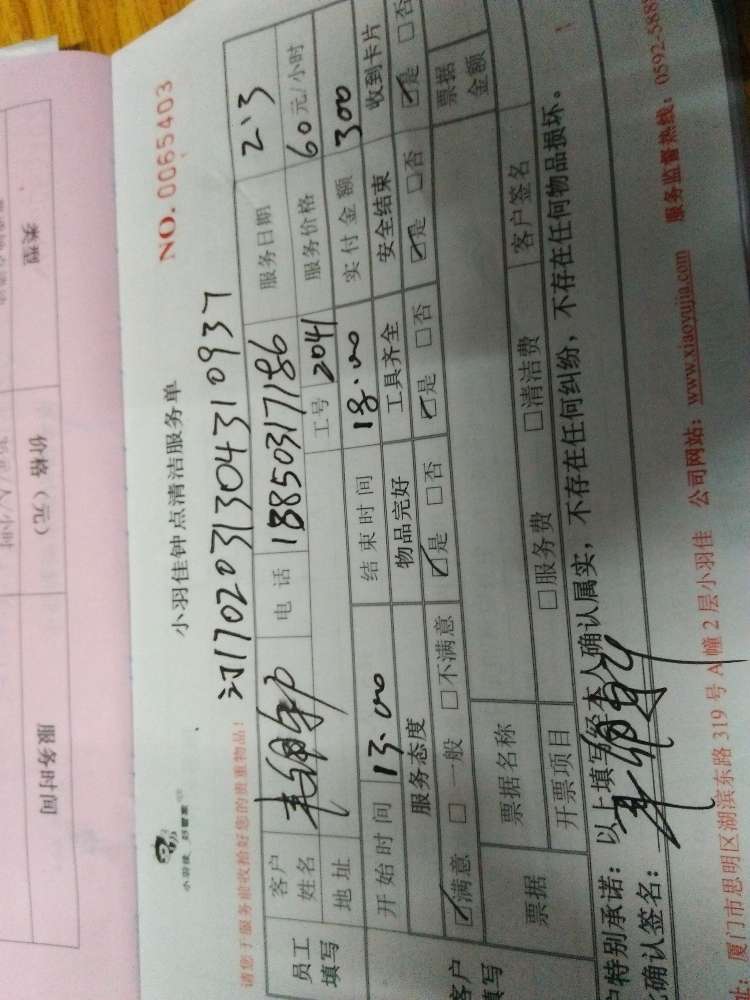 小羽佳钟点清洁服务单
NO. 0065403
小羽佳 好管家
请您于服务前收拾好您的贵重物品!
订170203130431 0937
员工填写
客户姓名
电话 18850317186
服务日期 2、3
地址
工号 2041
服务价格 60元/小时
开始时间 13.00
结束时间 18.00
实付金额 300
服务态度
物品完好
工具齐全
安全结束
收到卡片
☑满意 □一般 □不满意
☑是 □否
☑是 □否
☑是 □否
☑是 □否
客户填写
票据
票据名称
票据金额
开票项目
□服务费 □清洁费
客户签名
户特别承诺:以上填写经本人确认属实,不存在任何纠纷,不存在任何物品损坏。
确认签名:
址:厦门市思明区湖滨东路319号A幢2层小羽佳 公司网站:www.xiaoyujia.com 服务监督热线:0592-588
类型
价格(元)
服务时间